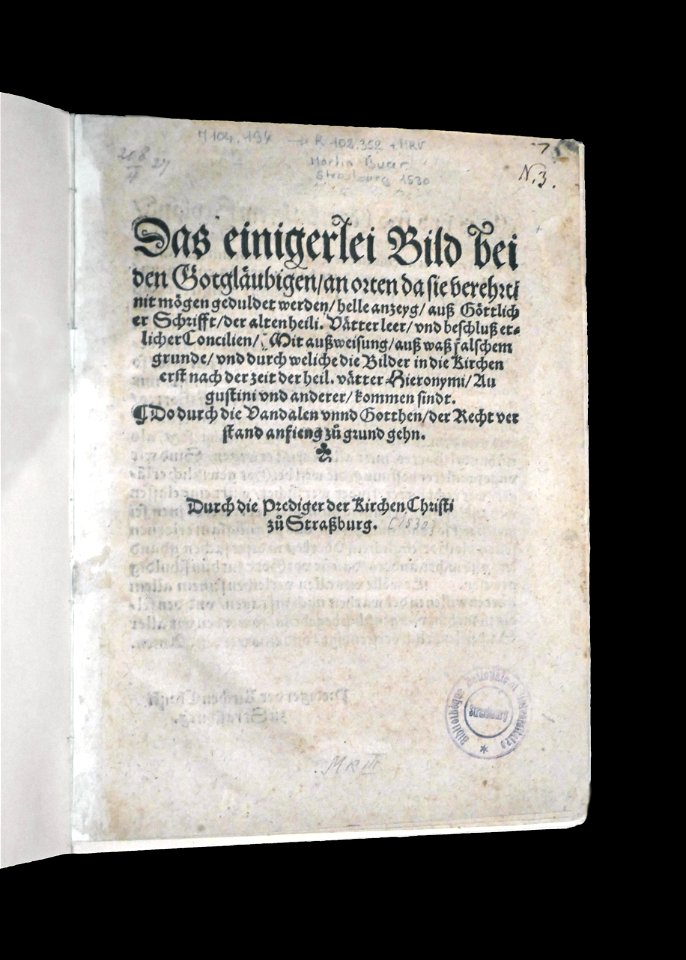 M 104.194 → R 102.352 + MRV
Martin Bucer
Strasbourg 1530
N. 3.
Das einigerlei Bild bei
den Gotgläubigen/an orten da sie verehrt
nit mögen geduldet werden/helle anzeyg/auß Göttlich
er Schrifft/der alten heili. Vätter leer/vnd beschluß et-
licher Concilien/Mit außweisung/auß waß falschem
grunde/vnd durch weliche die Bilder in die Kirchen
erst nach der zeit der heil. vätter Hieronymi/Au
gustini vnd anderer/kommen sindt.
¶Do durch die Vandalen vnnd Gotthen/der Recht ver
stand anfieng zů grund gehn.
Durch die Prediger der Kirchen Christi
zů Straßburg. [1530]